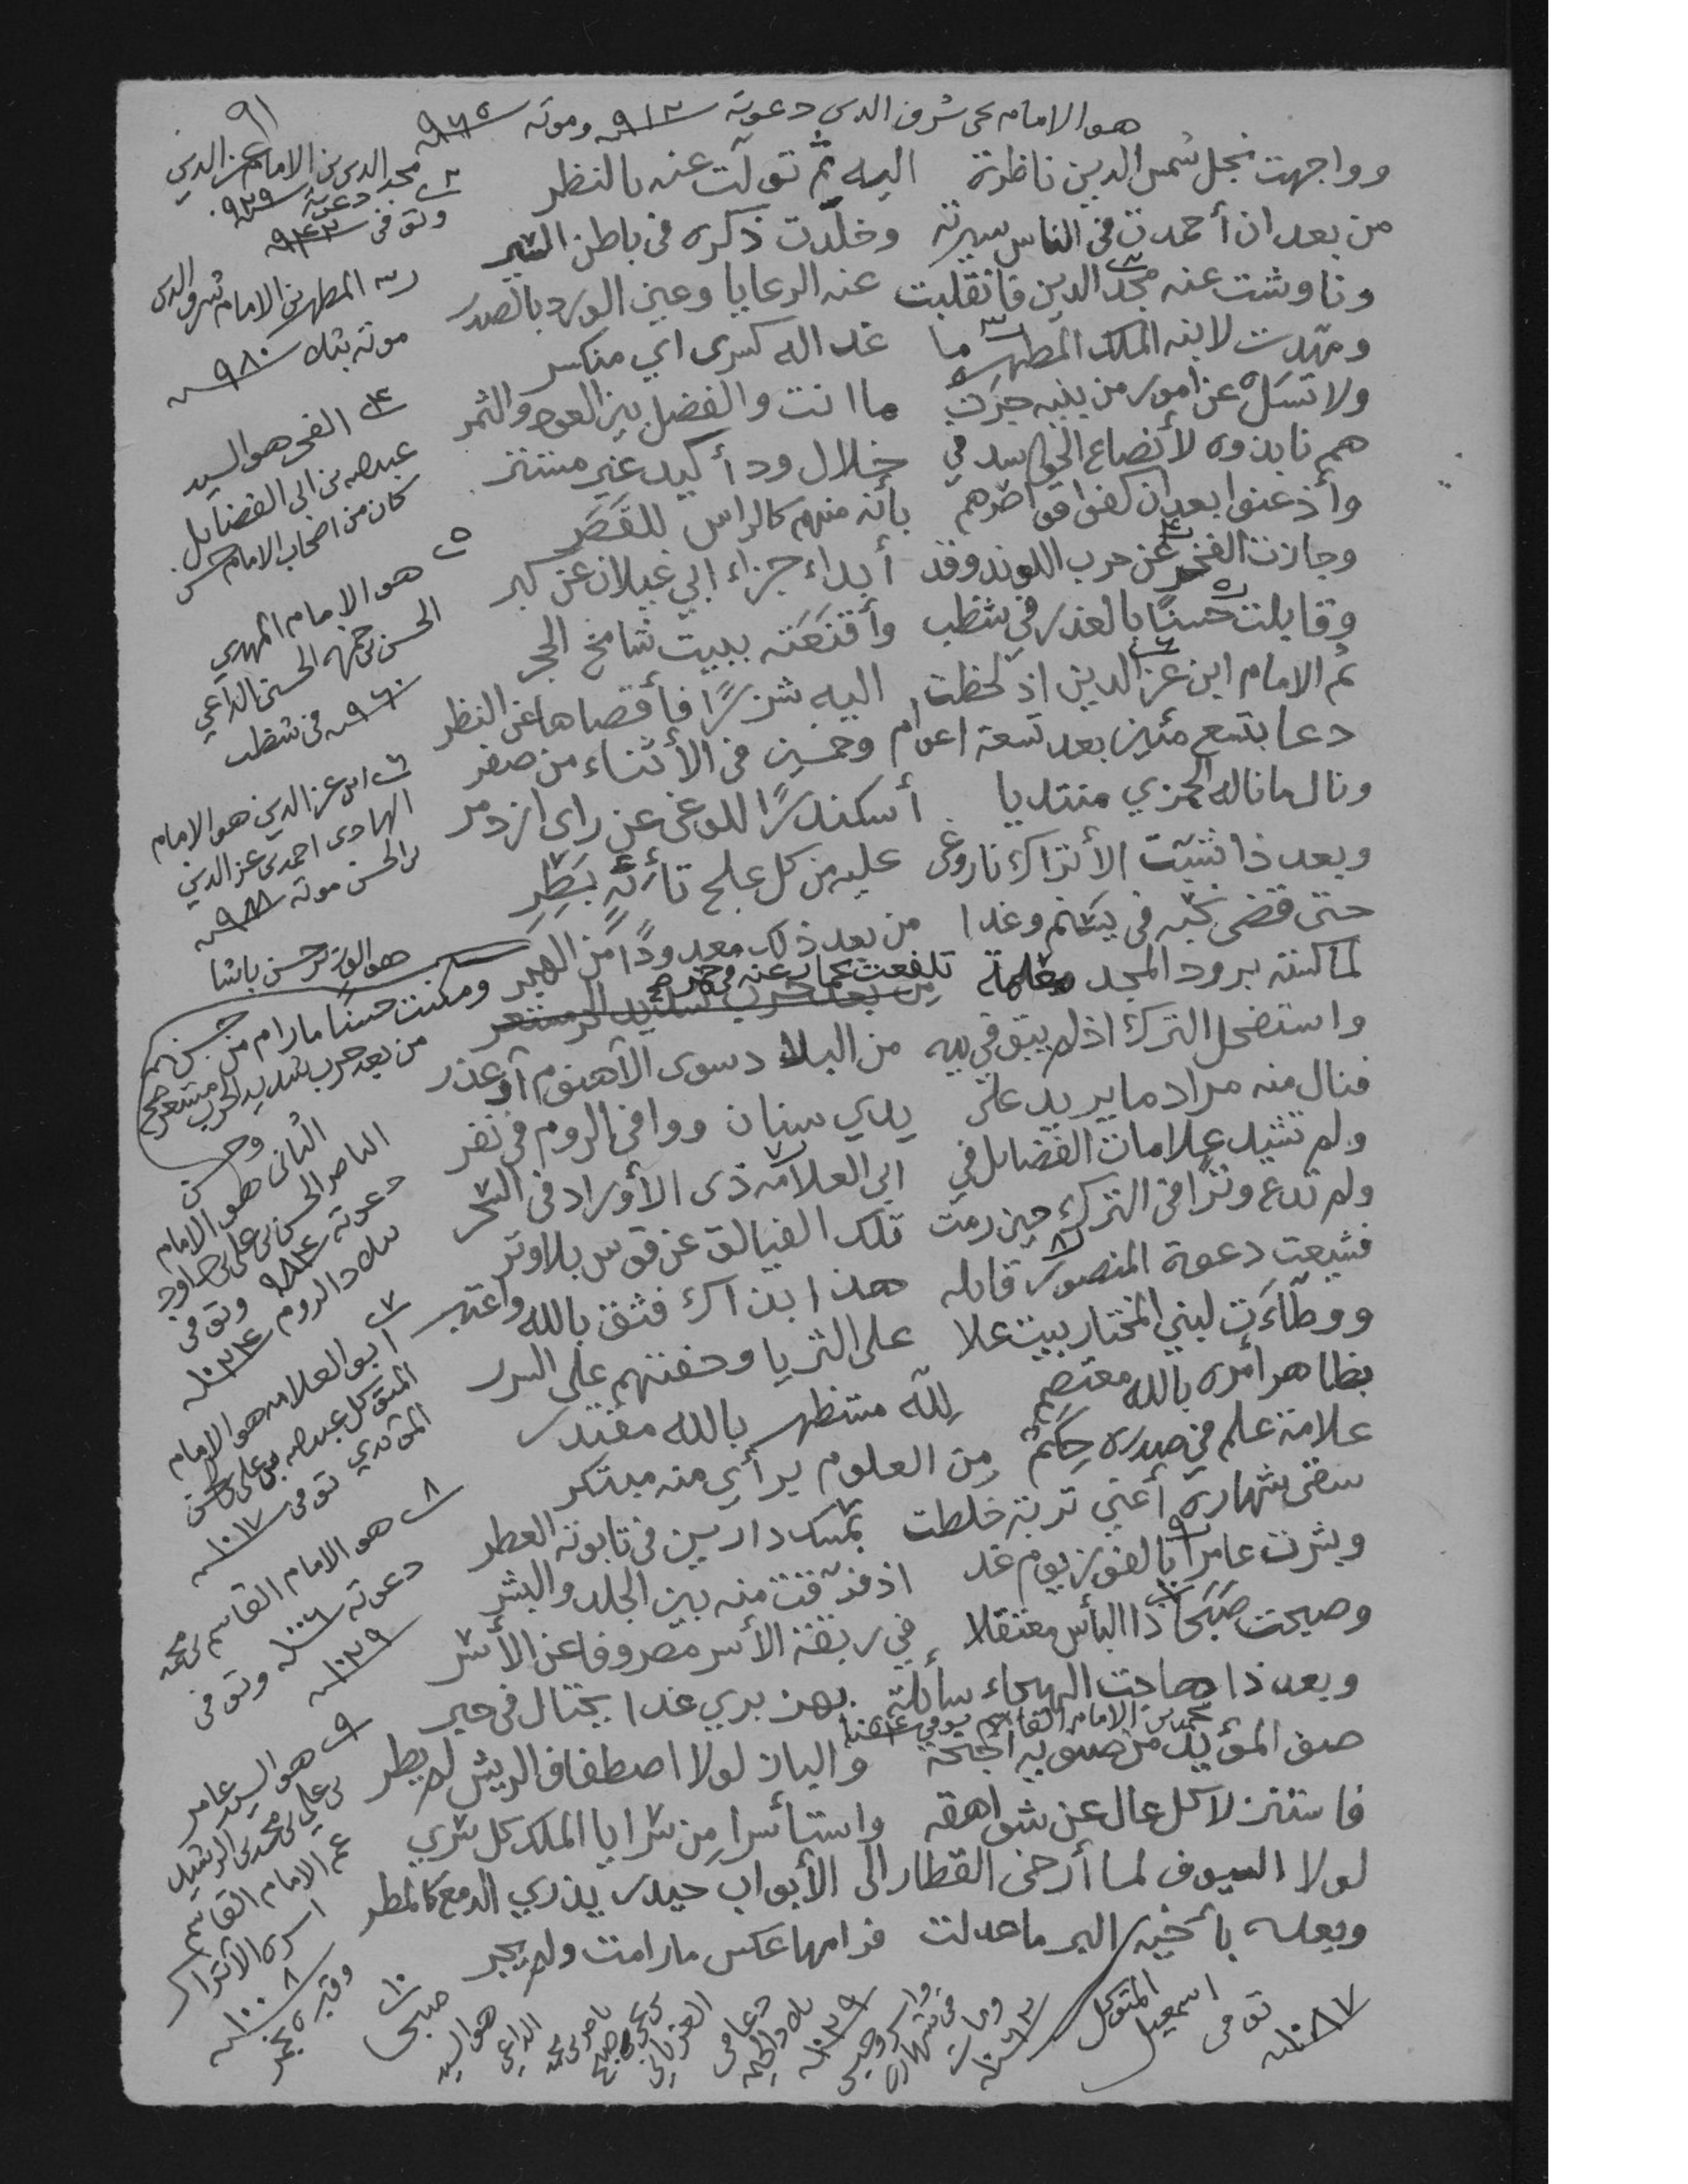 ٩١
هو الامام يحيى شرف الدين دعوته ٩١٢ وموته ٩٦٥
وواجهت نجل شمس الدين ناظرة اليه ثم تولت عنه بالنظر
من بعد ان أحمدت في الناس سيرته وخلّدت ذكره في باطن السير
وناوشت عنه مجد الدين فانقلبت عنه الرعايا وعين الورد بالصدر
ومهدت لابنه الملك المطهر ما غدا له كسرى اي منكسر
ولا تسل عن امور من بنيه جرت ما انت والفضل بين العود والثمر
هم نابذوه لأنصاع في خلال ود أكيد غير مستتر
وأذعنوا بعد ان كفوا أضرهم بأنه منهم كالراس للقصر
وجازت الفخر عن حرب اللوند وقد أبداء جزاء ابي غيلان عن كبر
وقابلت حسنًا بالغدر في شظب وأقنعته ببيت شامخ الحجر
ثم الامام ابن عز الدين اذ لحظت اليه شزرًا فأقصاها عن النظر
دعا بتسع مئين بعد تسعة اعوام وخمسين في الأثناء من صفر
ونال ما ناله الحمزي منتديا أسكندرًا للوغى عن راى ازدمر
وبعد ذا شبت الأتراك نار وغى عليه من كل علج تائه بطر
حتى قضى نحبه في يسنم وغدا من بعد ذلك معدودًا من الهدر
لما كنته برود المجد معلمة تلفعت
من بعد حرب شديد الحر مستعر
ومكنت حسنًا ما رام من حسن
من بعد حرب شديد الحرب مستعر صح
واستفحل الترك اذ لم يبق في يده من البلاد سوى الأهنوم أو عذر
فنال منه مراد ما يريد على يدي سنان ووافى الروم في نفر
ولم تشيد علامات الفضايل في ابي العلامة ذى الأوراد في السحر
ولم تدع وترا في الترك حين رمت تلك الفيالق عن قوس بلا وتر
فشيعت دعوة المنصور قايله هذا بذاك فثق بالله واعتبر
ووطأت لبني المختار بيت علا على الثريا وحفتهم على السرر
بظاهر أمره بالله معتصم لله مستظهر بالله مقتدر
علامة علم في صدره حكم من العلوم برأي منه مبتكر
سقى شهارة أعني تربة خلطت بمسك دارين في تابوته العطر
وبشرت عامرًا بالفوز يوم غد اذ فرّقت منه بين الجلد والبشر
وصبحت صبحًا ذا البأس معتقلا في ربقة الأسر مصروفا عن الأشر
وبعد ذا هاجت الهيجاء سائلة بهزبري غدا يختال في حبر
محمد بن الامام القاسم توفي ١٠٥٤
صنو المؤيد من صنويه أجنحة والباز لولا اصطفاف الريش لم يطر
فاستنزلا كل عال عن شواهقه واستأسرا من سرايا الملك كل سري
لولا السيوف لما أرخى القطار الى الأبواب حيدر يذري الدمع كالمطر
وبعده بأخيه البر ما عدلت فرامها عكس ما رامت ولم يجر
٢ مجد الدين بن الامام عز الدين
دعوته ٩٢٩
وتوفى ٩٤٢
٣ المطهر بن الامام شرف الدين
موته بثلا ٩٨٠
٤ الفخر هو السيد
عبدالله بن ابي الفضايل
كان من اصحاب الامام حسن
٥ هو الامام المهدي
الحسن بن حمزه الحسني الداعي
٩٦٠ في شظب
٦ ابن عز الدين هو الامام
الهادي احمد بن عز الدين
بن الحسن موته ٩٨٨
هو الوزير حسن باشا
وحسن
الثاني هو الامام
الناصر الحسن بن علي بن داود
دعوته ٩٨٤ وتوفي
ببلاد الروم ١٠٢٤
٧ ابو العلامه هو الامام
المتوكل عبدالله بن علي بن الحسن
المؤيدي توفى ١٠١٧
٨ هو الامام القاسم بن محمد
دعوته ١٠٠٦ وتوفى
١٠٢٩
٩ هو السيد عامر
بن علي بن محمد بن الرشيد
عم الامام القاسم
اسره الأتراك
١٠٠٨
وقبره بخمر
١٠ صبحا
هو السيد
الداعي
١٠٣٩
١٠٦٣
المتوكل
اسمعيل
توفي
١٠٨٧